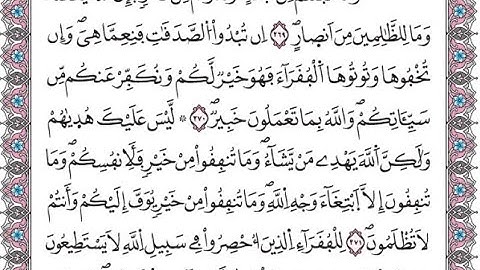 وَمَا لِلظَّٰلِمِينَ مِنَ اَنصٰارٍۖ ٢٦٩ اِن تُبْدُواْ الصَّدَقَٰتِ فَنِعِمَّا هِيَۖ وَإِن
تُخْفُوهَا وَتُوتُوهَا اَلْفُقَرَآءَ فَهُوَ خَيْرٌ لَّكُمْۖ وَنُكَفِّرْ عَنكُم مِّن
سَيِّـَٔاتِكُمْۖ وَاللَّهُ بِمَا تَعْمَلُونَ خَبِيرٌۖ ٢٧٠ ۞ لَّيْسَ عَلَيْكَ هُدَيٰهُمْ
وَلَٰكِنَّ اَللَّهَ يَهْدِے مَنْ يَّشَآءُۖ وَمَا تُنفِقُواْ مِنْ خَيْرٍ فَلِأَنفُسِكُمْۖ وَمَا
تُنفِقُونَ إِلَّا اَبْتِغَآءَ وَجْهِ اِللَّهِۖ وَمَا تُنفِقُواْ مِنْ خَيْرٍ يُوَفَّ إِلَيْكُمْ وَأَنتُمْ
لَا تُظْلَمُونَۖ ٢٧١ لِلْفُقَرَآءِ اِلذِينَ أُحْصِرُواْ فِے سَبِيلِ اِللَّهِ لَا يَسْتَطِيعُونَ